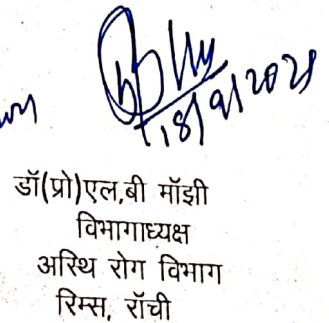 डॉ(प्रो)एल,बी मॉझी
विभागाध्यक्ष
अस्थि रोग विभाग
रिम्स, रॉची